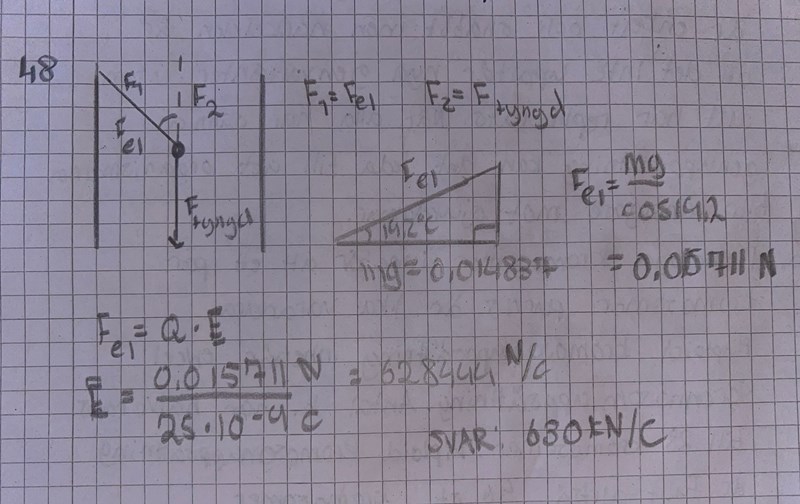 48
F₁
F₂
F_el
F_tyngd
F₁ = F_el F₂ = F_tyngd
F_el
14,2°C
mg = 0,014837
F_el = mg / cos14,2
= 0,015711 N
F_el = Q · E
E = 0,015711 N / 25·10⁻⁹ C = 628444 N/C
SVAR: 630 kN/C